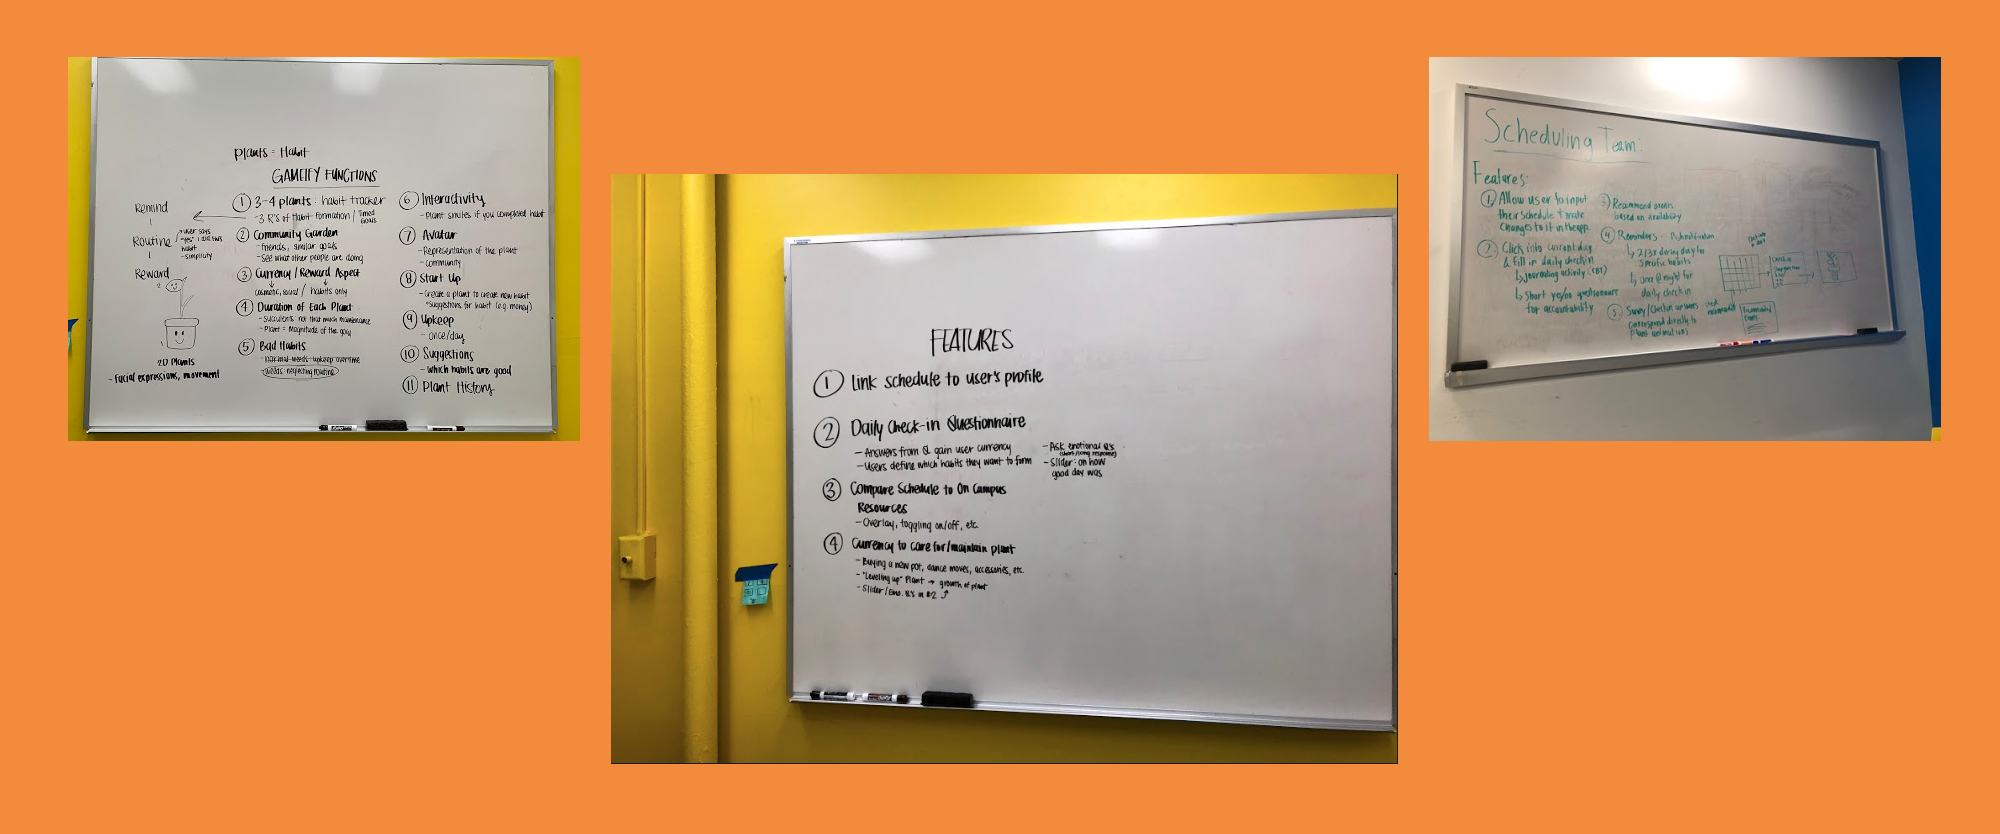 Plants = Habit
GAMEIFY FUNCTIONS
Remind
Routine
user says
"yes" I did this
habit
- simplicity
Reward
2D Plants
- facial expressions, movement
① 3-4 plants: habit tracker
- 3 R's of Habit Formation / Timed
Goals
② Community Garden
- friends, similar goals
- See what other people are doing
③ Currency / Reward Aspect
cosmetic, social / habits only
④ Duration of Each Plant
- Succulents: not that much maintenance
- Plant = Magnitude of the goal
⑤ Bad Habits
- Normal weeds - upkeep overtime
weeds: neglecting routine
⑥ Interactivity
- Plant smiles if you completed habit
⑦ Avatar
- Representation of the plant
- community
⑧ Start Up
- Create a plant to create new habit
*Suggestions for habit (e.g. money)
⑨ Upkeep
- once/day
⑩ Suggestions
- which habits are good
⑪ Plant History
FEATURES
① Link schedule to user's profile
② Daily Check-in Questionnaire
- Answers from Q gain user currency
- Users define which habits they want to form
- Ask emotional Q's
(short/long response)
- Slider: on how
good day was
③ Compare Schedule to On Campus
Resources
- Overlay, toggling on/off, etc.
④ Currency to care for/maintain plant
- Buying a new pot, dance moves, accessories, etc.
- "Leveling up" Plant → growth of plant
- Slider / Emo. Q's in #2
Scheduling Team:
Features:
① Allow user to input
their schedule + make
changes to it in the app.
② Click into current day
& fill in daily checkin
↳ Journaling activity (CBT)
↳ Short yes/no questionnaire
for accountability
③ Recommend events
based on availability
④ Reminders - Push notification
↳ 2/3x during day for
specific habits
↳ once @ night for
daily check in
⑤ Survey/Checkin answers
correspond directly to
plant animations